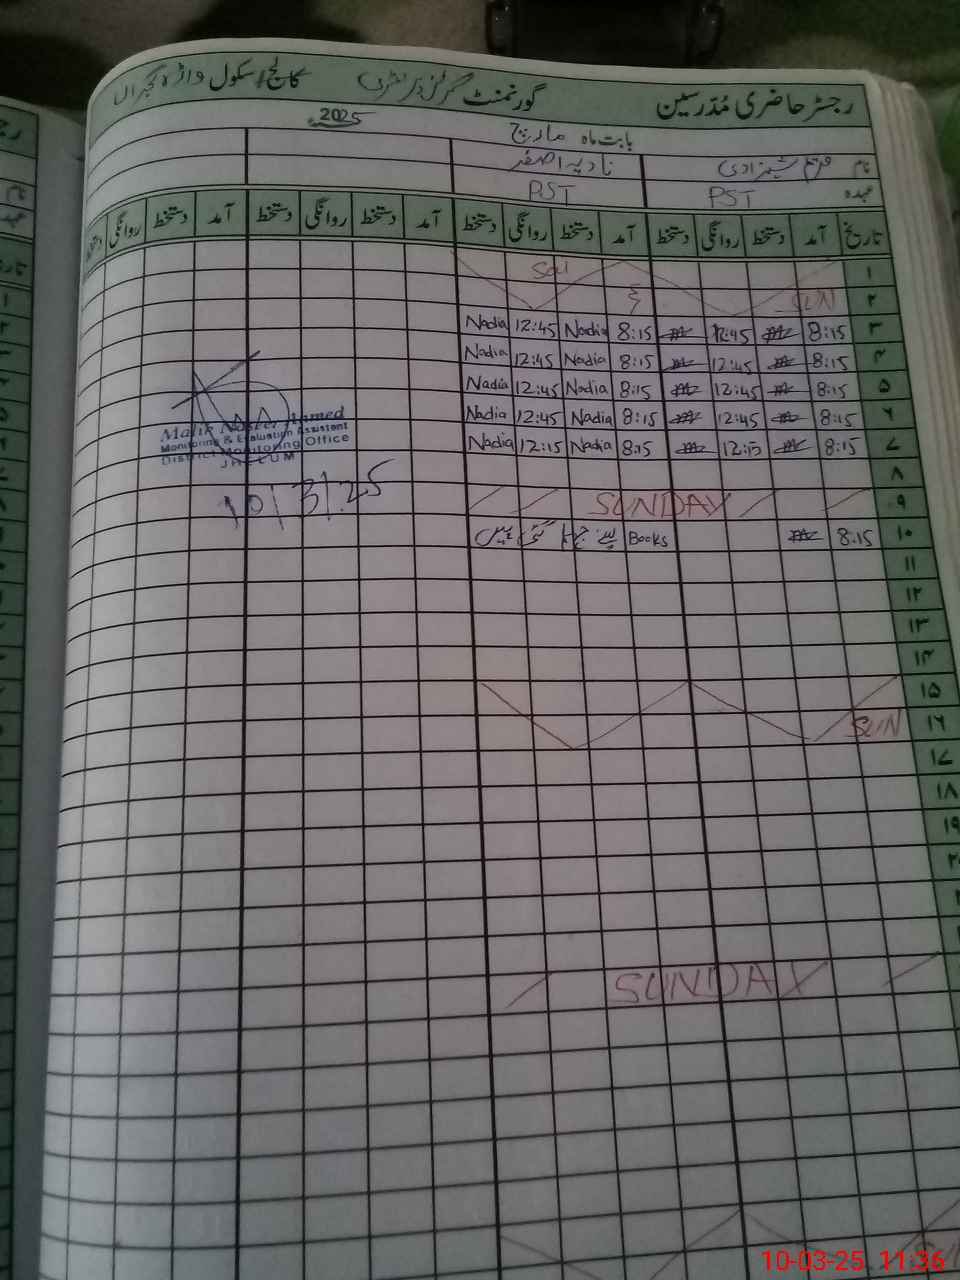 رجسٹر حاضری مُدرسین گورنمنٹ گرلز پرائمری کالج/سکول واڑہ گجراں
بابت ماہ مارچ 2025
نام مریم شہزادی نادیہ اصغر
عہدہ PST PST
تاریخ آمد دستخط روانگی دستخط آمد دستخط روانگی دستخط آمد دستخط روانگی دستخط آمد دستخط روانگی دستخط
۱ Sat
۲ SUN &
۳ 8:15 12:45 8:15 Nadia 12:45 Nadia
۴ 8:15 12:45 8:15 Nadia 12:45 Nadia
۵ 8:15 12:45 8:15 Nadia 12:45 Nadia
۶ 8:15 12:45 8:15 Nadia 12:45 Nadia
۷ 8:15 12:15 8:15 Nadia 12:15 Nadia
۸
۹ SUNDAY
۱۰ 8:15 Books لینے گئی ہیں
۱۱
۱۲
۱۳
۱۴
۱۵
۱۶ SUN
۱۷
۱۸
۱۹
۲۰
SUNDAY
Malik Naseer Ahmed
Monitoring & Evaluation Assistant
District Monitoring Office
JHELUM
10/3/25
10-03-25 11:36